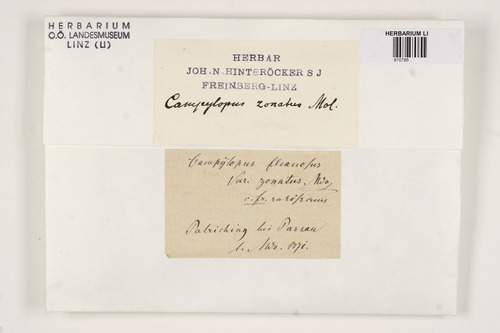 HERBARIUM
O.Ö. LANDESMUSEUM
LINZ (LI)
HERBARIUM LI
970785
HERBAR
JOH. N. HINTERÖCKER S J
FREINBERG-LINZ
Campylopus zonatus Mol.
Campylopus flexuosus
Var. zonatus
c. fr. rarissimus
Patriching bei Passau